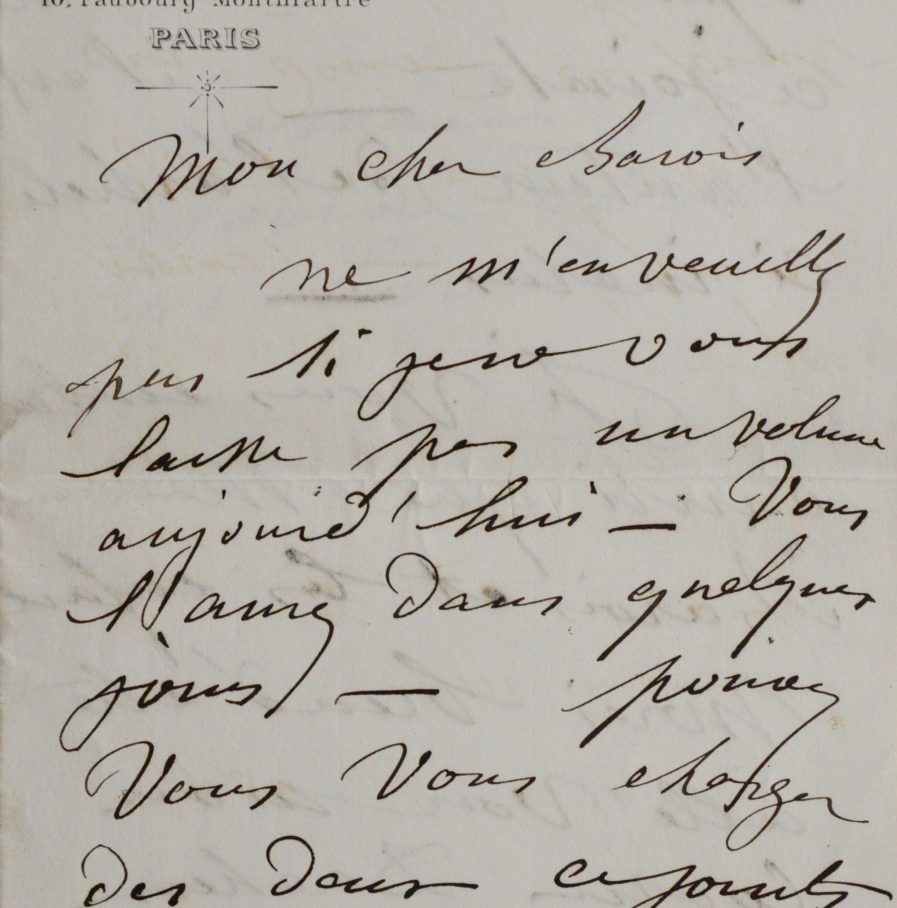 10, Faubourg Montmartre
PARIS
Mon cher Barois
ne m'en veuillez
pas si je ne vous
laisse pas un volume
aujourd'hui — Vous
l'aurez dans quelques
jours — pouvez
Vous Vous charger
des deux ci joints